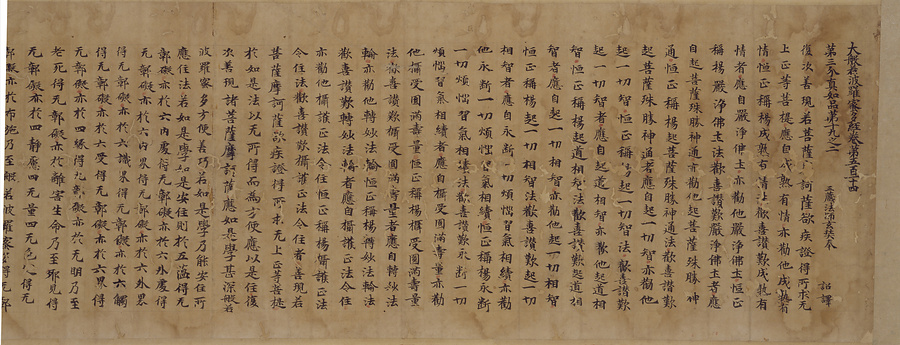 大般若波羅蜜多經卷第五百一十四
第三分真如品第十九之二 三藏法師玄奘奉 詔譯
復次善現若菩薩摩訶薩欲疾證得所求无
上正等菩提應自成熟有情亦勸他成熟有
情恒正稱揚成熟有情法歡喜讚歎成熟有
情者應自嚴淨佛土亦勸他嚴淨佛土恒正
稱揚嚴淨佛土法歡喜讚歎嚴淨佛土者應
自起菩薩殊勝神通亦勸他起菩薩殊勝神
通恒正稱揚起菩薩殊勝神通法歡喜讚歎
起菩薩殊勝神通者應自起一切智亦勸他
起一切智恒正稱揚起一切智法歡喜讚歎
起一切智者應自起道相智亦勸他起道相
智恒正稱揚起道相智法歡喜讚歎起道相
智者應自起一切相智亦勸他起一切相智
恒正稱揚起一切相智法歡喜讚歎起一切
相智者應自永斷一切煩惱習氣相續亦勸
他永斷一切煩惱習氣相續恒正稱揚永斷
一切煩惱習氣相續法歡喜讚歎永斷一切
煩惱習氣相續者應自攝受圓滿壽量亦勸
他攝受圓滿壽量恒正稱揚攝受圓滿壽量
法歡喜讚歎攝受圓滿壽量者應自轉妙法
輪亦勸他轉妙法輪恒正稱揚轉妙法輪法
歡喜讚歎轉妙法輪者應自攝護正法令住
亦勸他攝護正法令住恒正稱揚攝護正法
令住法歡喜讚歎攝護正法令住者善現若
菩薩摩訶薩欲疾證得所求无上正等菩提
於如是法以无所得而為方便應以是住復
次善現諸菩薩摩訶薩應如是學甚深般若
波羅蜜多方便善巧若如是學乃能安住所
應住法若如是學如是安住則於五蘊得无
鄣礙亦於六內處得无鄣礙亦於六外處得
无鄣礙亦於六內界得无鄣礙亦於六外界
得无鄣礙亦於六識界得无鄣礙亦於六觸
得无鄣礙亦於六受得无鄣礙亦於六界得
无鄣礙亦於四緣得无鄣礙亦於无明乃至
老死得无鄣礙亦於離害生命乃至邪見得
无鄣礙亦於四靜慮四无量四无色定得无
鄣礙亦於布施乃至般若波羅蜜多得无鄣